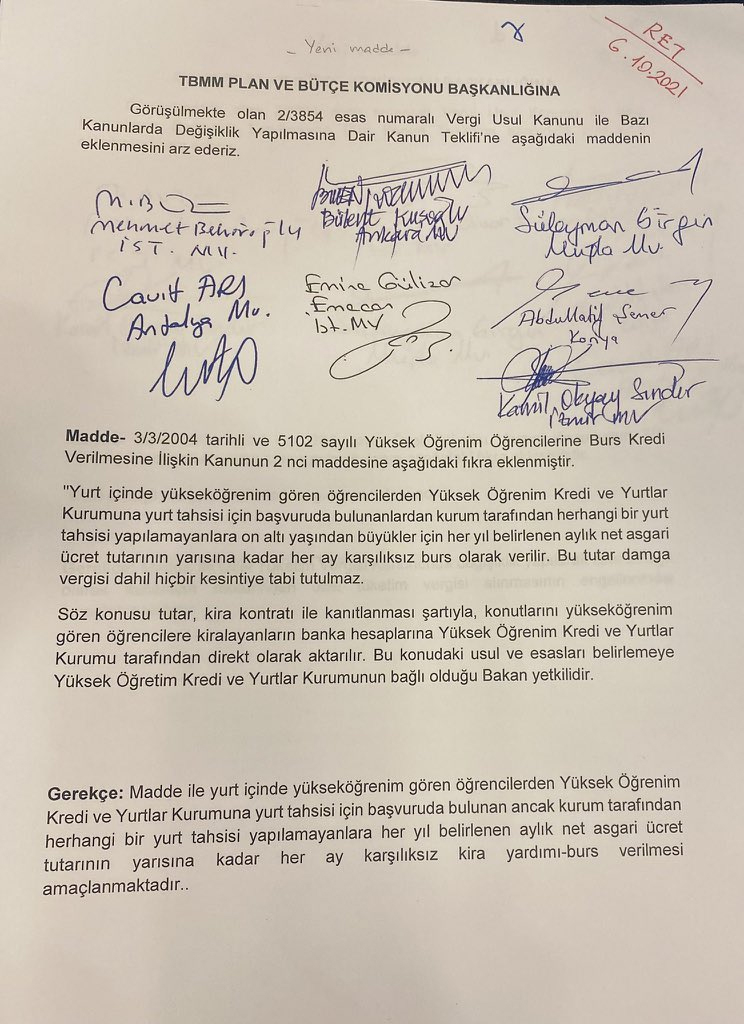 - Yeni madde -
RET
6.10.2021
TBMM PLAN VE BÜTÇE KOMİSYONU BAŞKANLIĞINA
Görüşülmekte olan 2/3854 esas numaralı Vergi Usul Kanunu ile Bazı
Kanunlarda Değişiklik Yapılmasına Dair Kanun Teklifi'ne aşağıdaki maddenin
eklenmesini arz ederiz.
Mehmet Bekaroğlu
İST. MV.
Bülent Kuşoğlu
Ankara MV
Süleyman Girgin
Muğla Mv.
Cavit ARI
Antalya Mv.
Emine Gülizar
Emecan
İst. MV
Abdullatif Şener
Konya
Kamil Okyay Sındır
İzmir MV
Madde- 3/3/2004 tarihli ve 5102 sayılı Yüksek Öğrenim Öğrencilerine Burs Kredi
Verilmesine İlişkin Kanunun 2 nci maddesine aşağıdaki fıkra eklenmiştir.
"Yurt içinde yükseköğrenim gören öğrencilerden Yüksek Öğrenim Kredi ve Yurtlar
Kurumuna yurt tahsisi için başvuruda bulunanlardan kurum tarafından herhangi bir yurt
tahsisi yapılamayanlara on altı yaşından büyükler için her yıl belirlenen aylık net asgari
ücret tutarının yarısına kadar her ay karşılıksız burs olarak verilir. Bu tutar damga
vergisi dahil hiçbir kesintiye tabi tutulmaz.
Söz konusu tutar, kira kontratı ile kanıtlanması şartıyla, konutlarını yükseköğrenim
gören öğrencilere kiralayanların banka hesaplarına Yüksek Öğrenim Kredi ve Yurtlar
Kurumu tarafından direkt olarak aktarılır. Bu konudaki usul ve esasları belirlemeye
Yüksek Öğretim Kredi ve Yurtlar Kurumunun bağlı olduğu Bakan yetkilidir.
Gerekçe: Madde ile yurt içinde yükseköğrenim gören öğrencilerden Yüksek Öğrenim
Kredi ve Yurtlar Kurumuna yurt tahsisi için başvuruda bulunan ancak kurum tarafından
herhangi bir yurt tahsisi yapılamayanlara her yıl belirlenen aylık net asgari ücret
tutarının yarısına kadar her ay karşılıksız kira yardımı-burs verilmesi
amaçlanmaktadır..